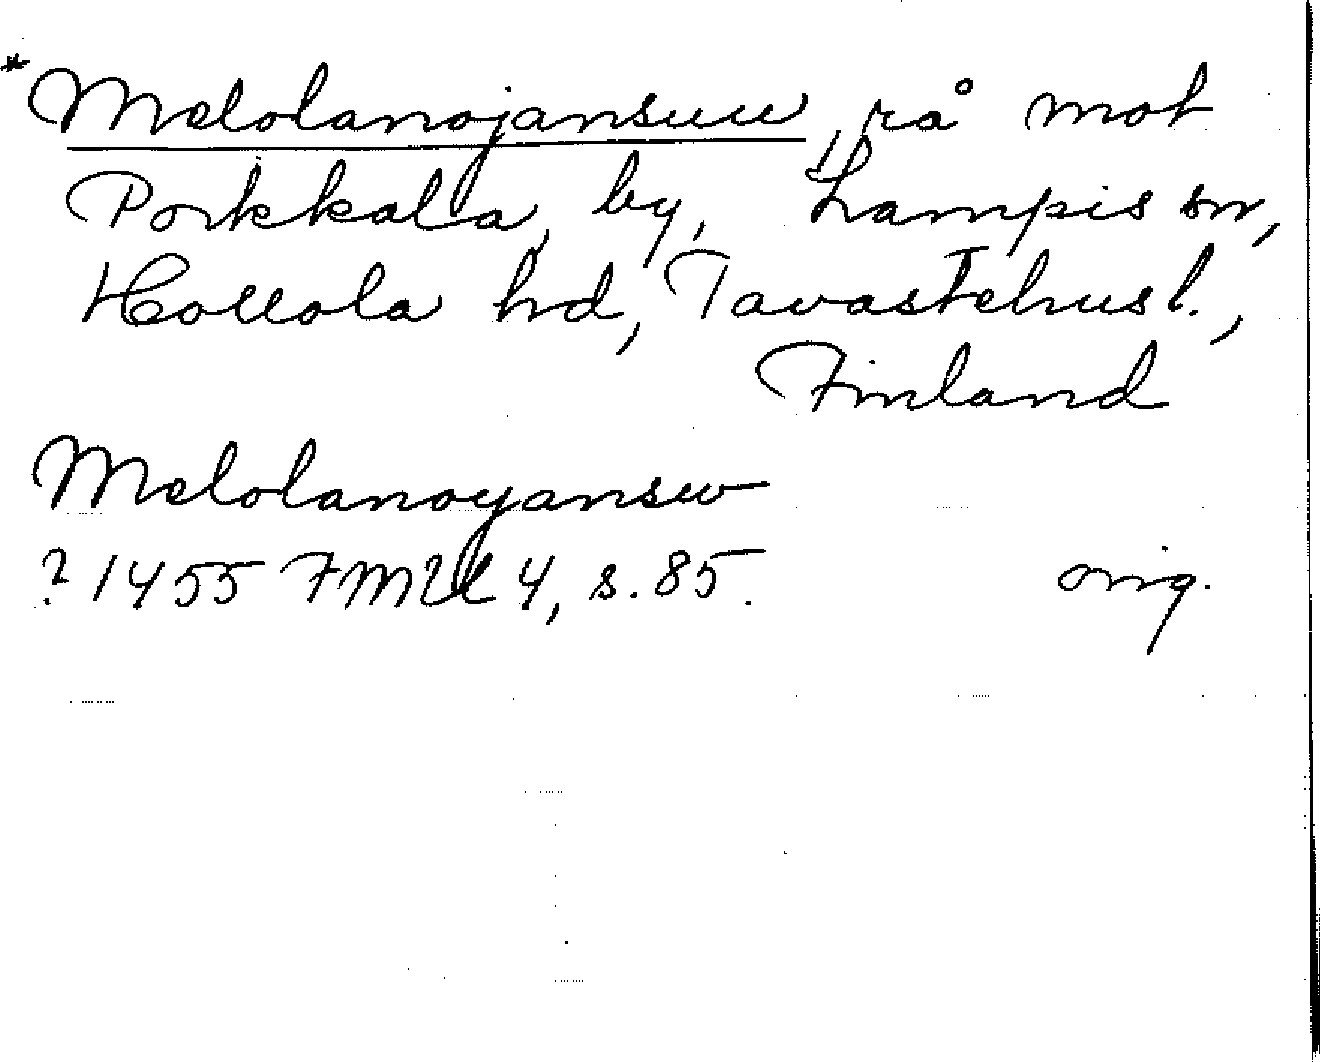 *Melolanojansuu, rå mot
Porkkala, by, Lampis sn,
Hollola hd, Tavastehusl.,
Finland
Melolanoyansw
? 1455 FMU 4, s. 85. orig.